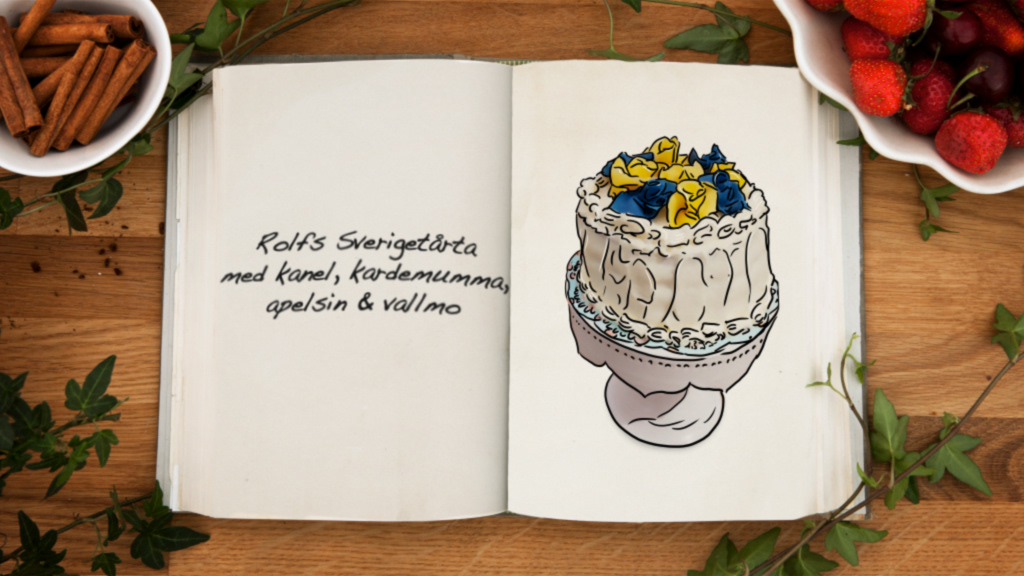 Rolfs Sverigetårta
med kanel, kardemumma,
apelsin & vallmo